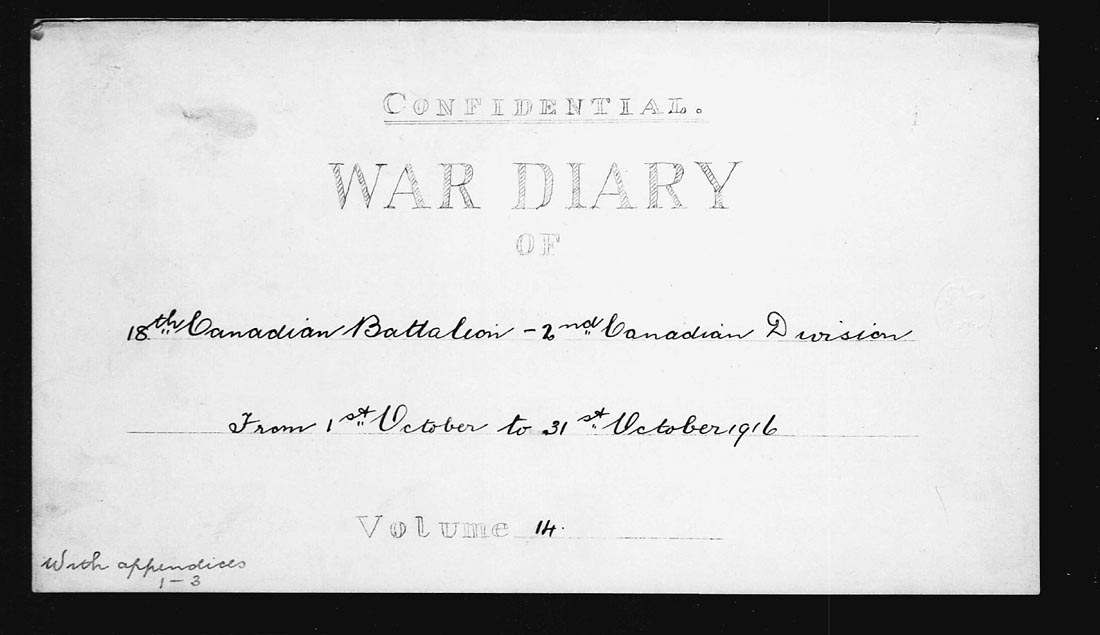 CONFIDENTIAL.
WAR DIARY
OF
18th Canadian Battalion - 2nd Canadian Division
From 1st October to 31st October 1916
Volume 14.
With appendices
1-3